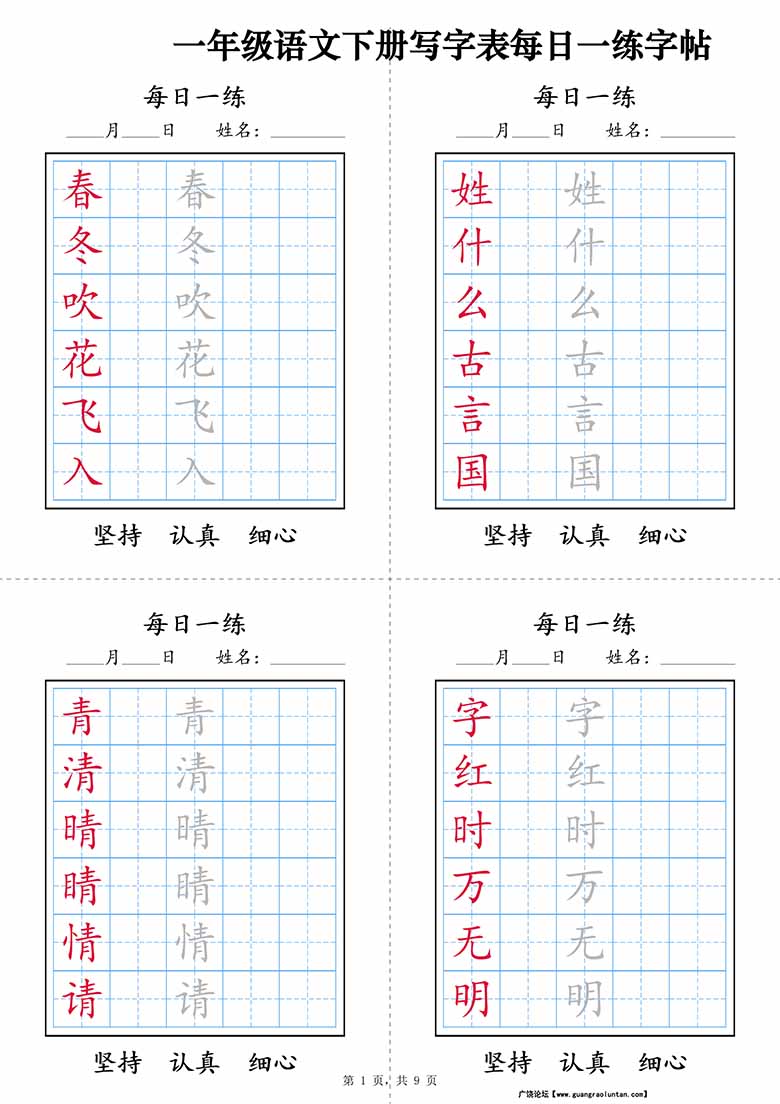 一年级语文下册写字表每日一练字帖
每日一练
____月____日 姓名：________
春 春
冬 冬
吹 吹
花 花
飞 飞
入 入
坚持 认真 细心
每日一练
____月____日 姓名：________
姓 姓
什 什
么 么
古 古
言 言
国 国
坚持 认真 细心
每日一练
____月____日 姓名：________
青 青
清 清
晴 晴
睛 睛
情 情
请 请
坚持 认真 细心
每日一练
____月____日 姓名：________
字 字
红 红
时 时
万 万
无 无
明 明
坚持 认真 细心
第 1 页，共 9 页
广饶论坛【www.guangraoluntan.com】